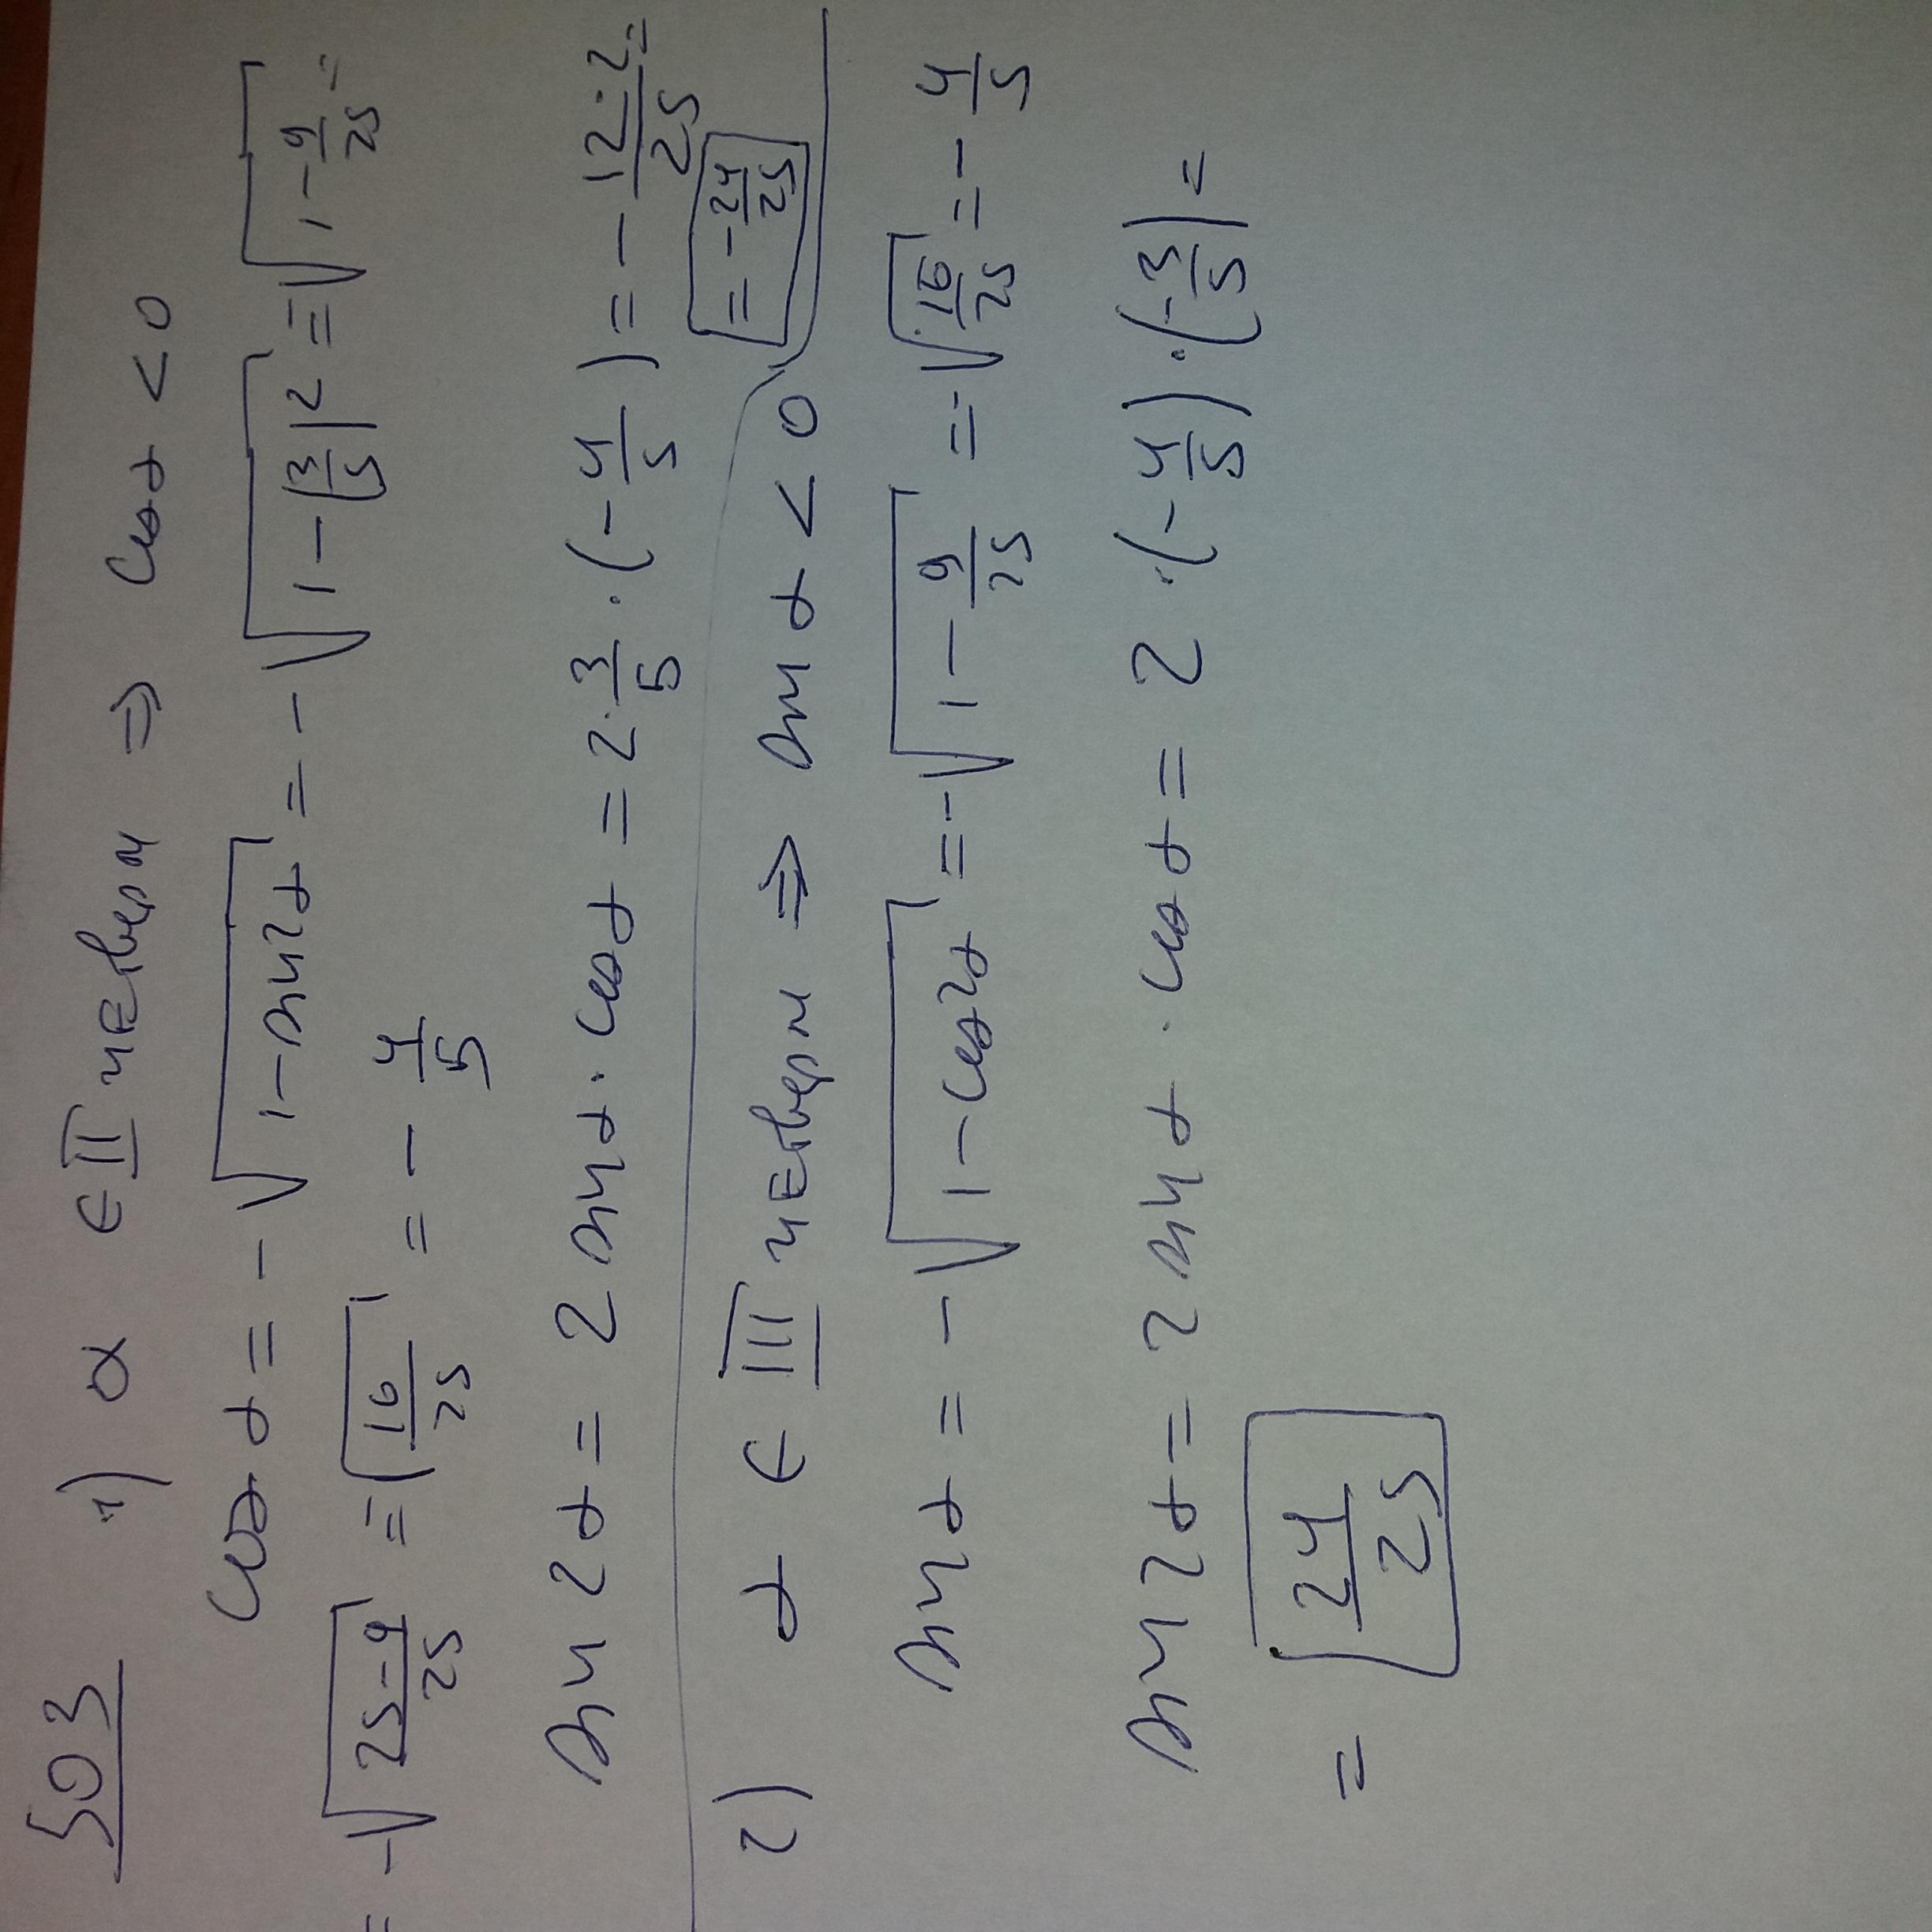 503 1) α ∈ II четверти ⇒ cos α < 0
cos α = -√(1 - sin²α) = -√(1 - (3/5)²) = √(1 - 9/25) =
= -√((25-9)/25) = √(16/25) = - 4/5
sin 2α = 2 sin α · cos α = 2 · 3/5 · (- 4/5) = - 12·2/25 =
= - 24/25
2) α ∈ III четверти ⇒ sin α < 0
sin α = -√(1 - cos²α) = -√(1 - 9/25) = -√(16/25) = - 4/5
sin 2α = 2 sin α · cos α = 2 · (- 4/5) · (- 3/5) =
= 24/25